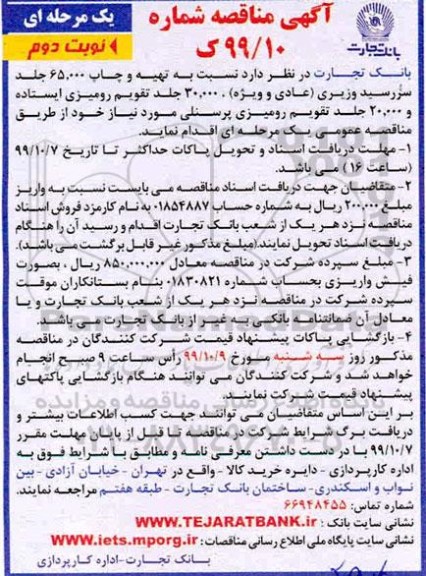 آگهی مناقصه شماره
۹۹/۱۰ ک
یک مرحله ای
نوبت دوم
بانک تجارت
بانک تجارت در نظر دارد نسبت به تهیه و چاپ ۶۵،۰۰۰ جلد
سررسید وزیری (عادی و ویژه) ، ۳۰،۰۰۰ جلد تقویم رومیزی ایستاده
و ۲۰،۰۰۰ جلد تقویم رومیزی پرسنلی مورد نیاز خود از طریق
مناقصه عمومی یک مرحله ای اقدام نماید.
۱- مهلت دریافت اسناد و تحویل پاکات حداکثر تا تاریخ ۹۹/۱۰/۷
(ساعت ۱۶) می باشد.
۲- متقاضیان جهت دریافت اسناد مناقصه می بایست نسبت به واریز
مبلغ ۲۰۰،۰۰۰ ریال به شماره حساب ۰۱۸۵۴۸۸۷ به نام کارمزد فروش اسناد
مناقصه نزد هر یک از شعب بانک تجارت اقدام و رسید آن را هنگام
دریافت اسناد تحویل نمایند.(مبلغ مذکور غیر قابل برگشت می باشد).
۳- مبلغ سپرده شرکت در مناقصه معادل ۸۵۰،۰۰۰،۰۰۰ ریال ، بصورت
فیش واریزی بحساب شماره ۰۱۸۳۰۸۲۱ بنام بستانکاران موقت
سپرده شرکت در مناقصه نزد هر یک از شعب بانک تجارت و یا
معادل آن ضمانتنامه بانکی به غیر از بانک تجارت می باشد.
۴- بازگشایی پاکات پیشنهاد قیمت شرکت کنندگان در مناقصه
مذکور روز سه شنبه مورخ ۹۹/۱۰/۹ رأس ساعت ۹ صبح انجام
خواهد شد و شرکت کنندگان می توانند هنگام بازگشایی پاکتهای
پیشنهاد قیمت شرکت نمایند.
بر این اساس متقاضیان می توانند جهت کسب اطلاعات بیشتر و
دریافت برگ شرایط شرکت در مناقصه تا قبل از پایان مهلت مقرر
۹۹/۱۰/۷ با در دست داشتن معرفی نامه و مطابق با شرایط فوق به
اداره کارپردازی - دایره خرید کالا - واقع در تهران - خیابان آزادی - بین
نواب و اسکندری- ساختمان بانک تجارت - طبقه هفتم مراجعه نمایند.
شماره تماس: ۶۶۹۴۸۴۵۵
نشانی سایت بانک : WWW.TEJARATBANK.ir
نشانی سایت پایگاه ملی اطلاع رسانی مناقصات: www.iets.mporg.ir
بانک تجارت-اداره کارپردازی